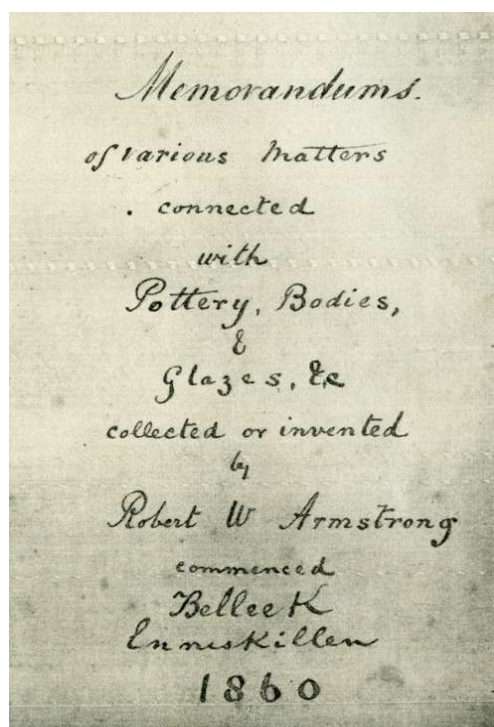 Memorandums.
of various Matters
connected
with
Pottery, Bodies,
&
Glazes, &c
collected or invented
by
Robert W Armstrong
commenced
Belleek
Enniskillen
1860